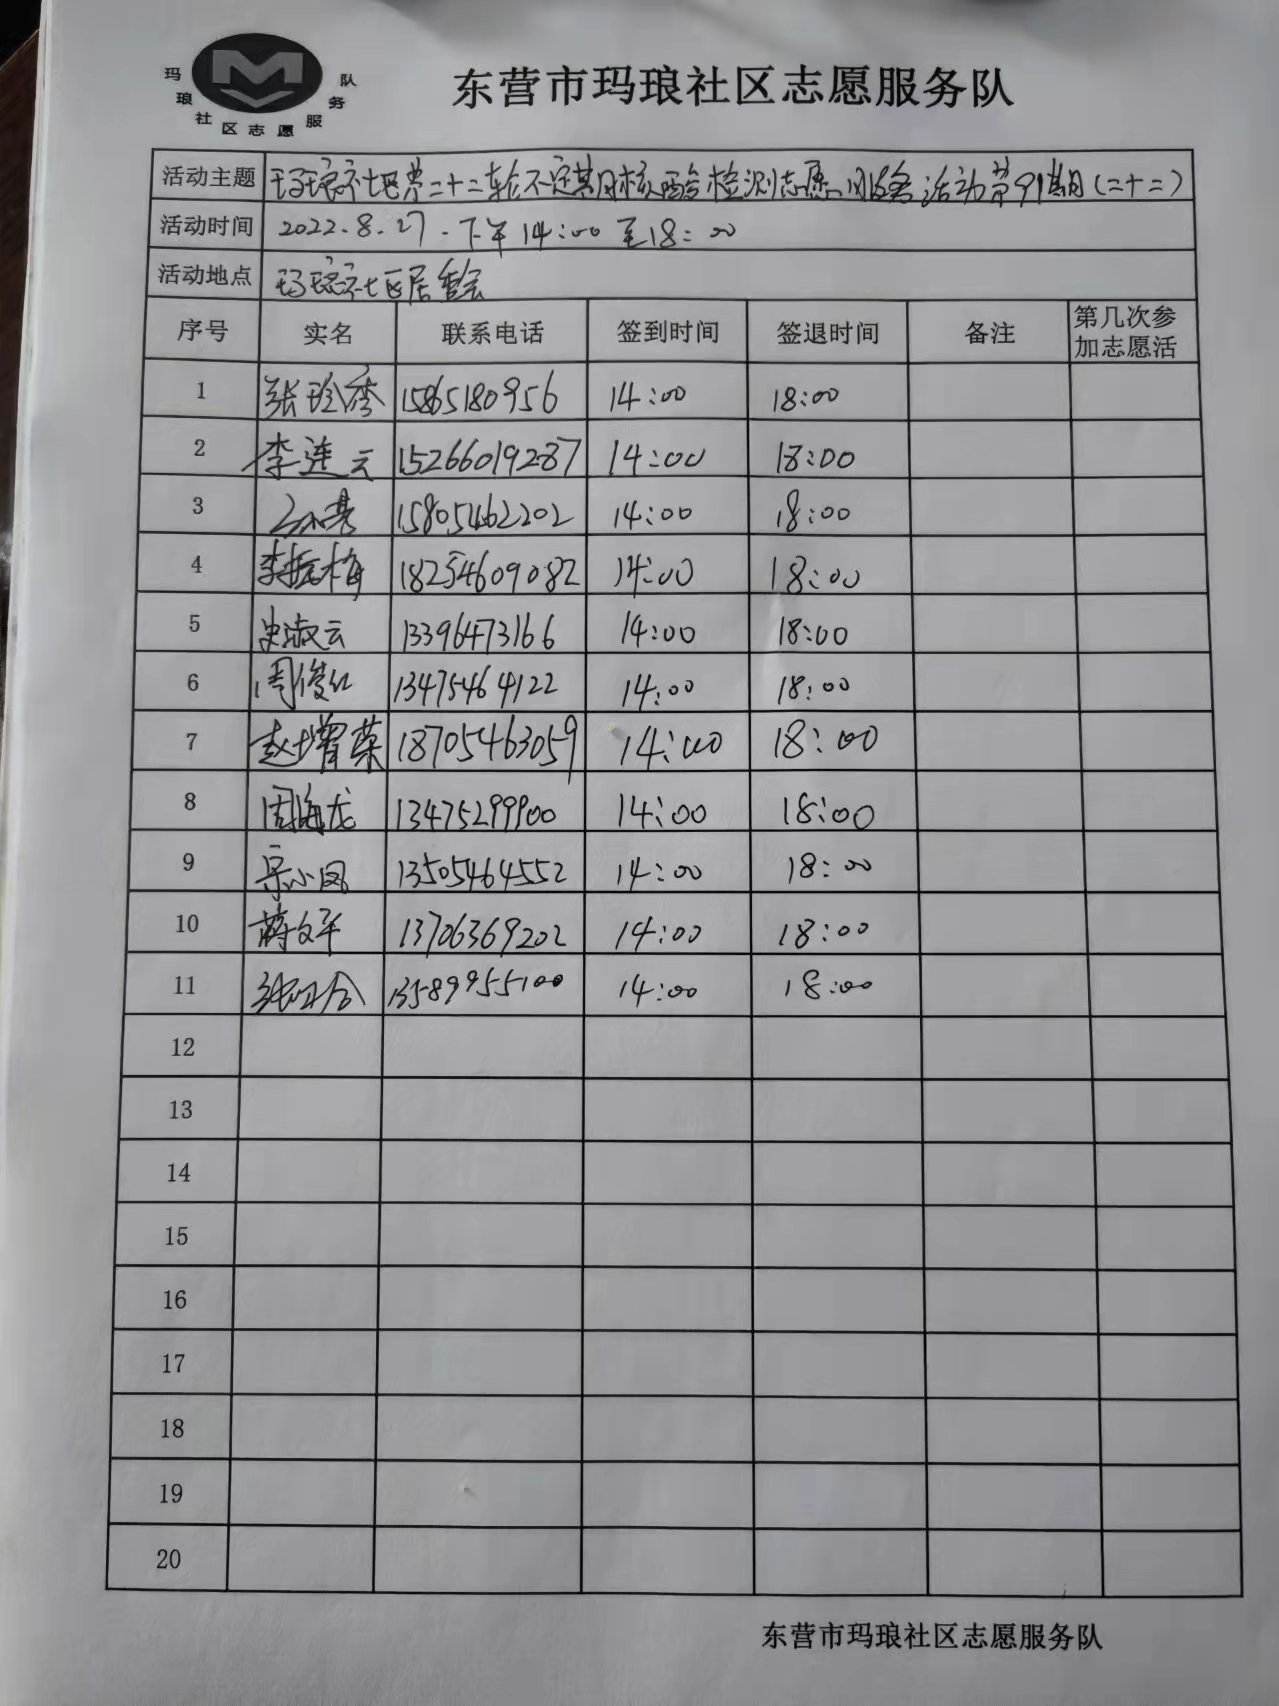 玛琅社区志愿服务队
东营市玛琅社区志愿服务队
活动主题 玛琅社区第二十二轮不定期核酸检测志愿服务活动第91期(二十二)
活动时间 2022.8.27.下午14:00至18:00
活动地点 玛琅社区居委会
序号 实名 联系电话 签到时间 签退时间 备注 第几次参
加志愿活
1 张玲秀 15865180956 14:00 18:00
2 李莲云 15266019287 14:00 18:00
3 15805462202 14:00 18:00
4 李振梅 18254609082 14:00 18:00
5 史淑云 13396473166 14:00 18:00
6 周俊红 13475464122 14:00 18:00
7 赵增荣 18705463059 14:00 18:00
8 周海龙 13475299900 14:00 18:00
9 宗小凤 13505464552 14:00 18:00
10 蒋文平 13706369202 14:00 18:00
11 13589955100 14:00 18:00
12
13
14
15
16
17
18
19
20
东营市玛琅社区志愿服务队